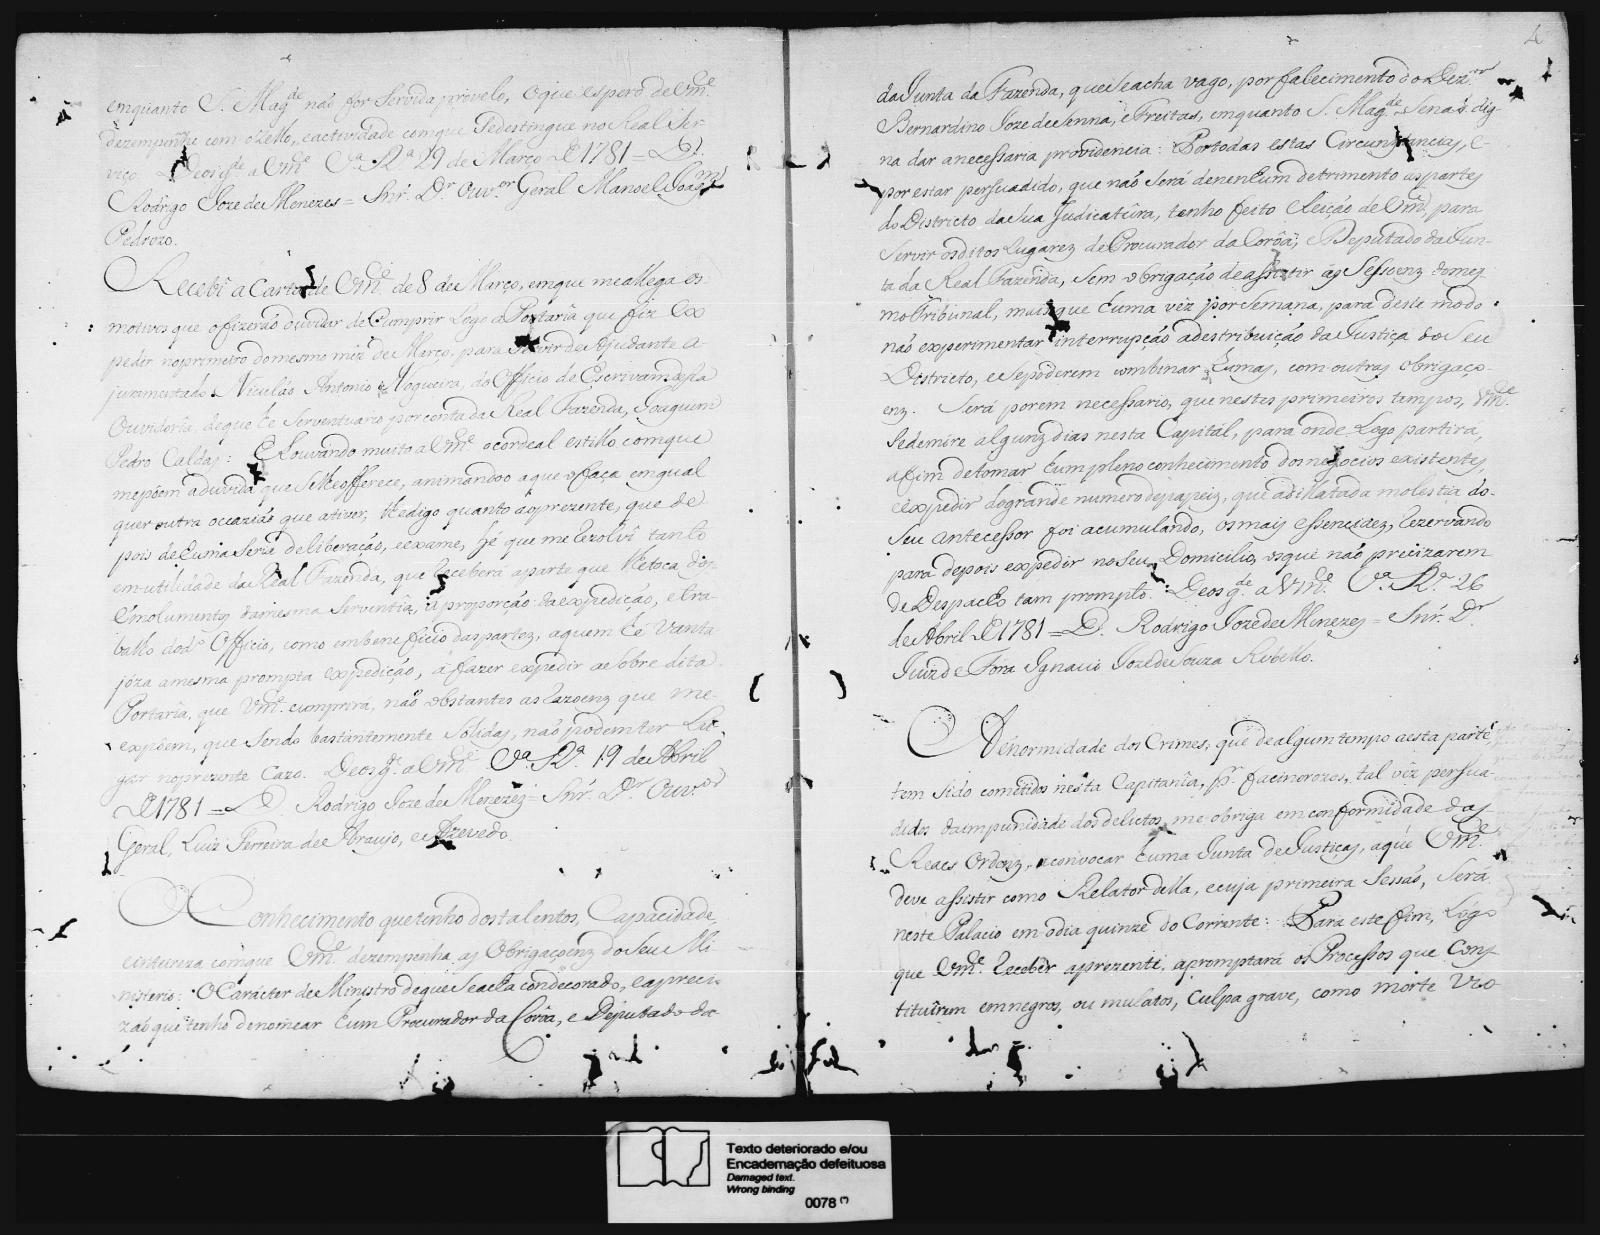 emquanto S. Mag.de naõ for Servida provelo, Oque espero de Vm.ce
dezempenhe com o Zello, eactividade comque Sedestingue no Real Ser-
viço. Deos g.de a Vm.ce V.a R.a 29 de Março de 1781 = D.
Rodrigo Joze de Menezes = Snr. D.r Ouv.or Geral Manoel Joaq.m
Pedrozo.
Recebi a Carta de Vm.ce de 8 de Março, emque me allega os
motivos que ofizeraõ duvidar de Cumprir Logo a Portaria que fiz Ex
pedir noprimeiro domesmo mez de Março, para Servir de Ajudante a-
juramentado Nicoláo Antonio Nogueira, do Officio de Escrivam dessa
Ouvidoria, deque hé Serventuario por conta da Real Fazenda, Joaquim
Pedro Caldas: E Louvando muito a Vm.ce o cordeal estillo comque
mepoem aduvida que Selleofferece, animandoo aque ofaça emqual
quer outra occaziaõ que ativer, lhedigo quanto aoprezente, que de
pois dehuma Seria deliberaçaõ, eexame, hé que me Rezolvi tanto
em utilidade da Real Fazenda, que Receberá aparte que lhetoca dos
Emolumentos damesma Serventia, á proporçaõ da expediçaõ, etra-
balho dod.o Officio, como embeneficio daspartes, aquem hé vanta
joza amesma prompta expediçaõ, á fazer expedir a Sobre dita
Portaria, que Vm.ce cumprirá, naõ obstantes as Razoens que me-
expoem, que Sendo bastantemente Solidas, naõ podem ter Lu-
gar noprezente Cazo. Deos g.e a Vm.ce V.a R.a 19 de Abril
de 1781 = D. Rodrigo Joze de Menezes = Snr. D.r Ouv.or
Geral, Luiz Ferreira de Araujo, e Azevedo.
O Conhecimento que tenho dos talentos, Capacidade
einteireza comque Vm.ce dezempenha as Obrigaçoens do Seu Mi
nisterio: O Carácter de Ministro deque Seacha condecorado, eapreci-
zaõ que tenho denomear hum Procurador da Corôa, e Deputado da
4
da Junta da Fazenda, queseacha vago, por falecimento do Dez.or
Bernardino Joze de Senna, e Freitas, emquanto S. Mag.de Senaõ dig-
na dar anecessaria providencia: Portodas estas Circunstancias, e
por estar persuadido, que naõ Será denenhum detrimento aspartes
do Districto da Sua Judicatura, tenho feito Eleiçaõ de Vm.ce, para
Servir osditos Lugares de Procurador da Corôa, e Deputado da Jun-
ta da Real Fazenda, Sem obrigaçaõ de assistir ás Sessoens domes
mo Tribunal, mais que huma vêz por Semana, para deste modo
naõ experimentar interrupçaõ adestribuiçaõ da Justiça do Seu
Districto, e Sepoderem combinar humas, com outras obrigaço-
ens. Será porem necessario, que nestes primeiros tempos, Vm.ce
Sedemire alguns dias nesta Capital, para onde Logo partirá,
afim detomar humpleno conhecimento dosnegocios existentes,
eexpedir dogrande numero depapeis, que adilatada molestia do-
Seu antecessor foi acumulando, osmais essenciaes, Rezervando
para depois expedir no Seu Domicilio, osque naõ precizarem
de Despacho tam prompto. Deos g.de a Vm.ce V.a R.a 26
de Abril de 1781 = D. Rodrigo Joze de Menezes = Snr. D.r
Juiz de Fora Ignacio Joze de Souza Rebello.
A enormidade dos Crimes, que dealgum tempo aesta parte,
tem Sido cometidos nesta Capitania, p.r facinorozos, tal vêz persua-
didos da impunidade dosdelictos, me obriga em conformidade das
Reaes Ordens, aconvocar huma Junta de Justiças, aque Vm.ce
deve assistir como Relator della, ecuja primeira Sessaõ, Será
neste Palacio em odia quinze do Corrente: Para este fim, Lógo
que Vm.ce Receber aprezente, apromptará os Processos que Cons
tituirem emnegros, ou mulatos, Culpa grave, como morte vio
Texto deteriorado e/ou
Encadernação defeituosa
Damaged text.
Wrong binding
0078 (*)